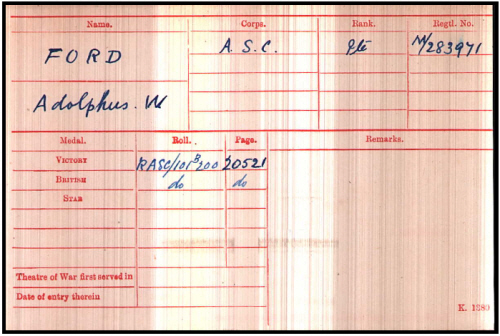 Name. Corps. Rank. Regtl. No.
FORD A. S. C. Pte M/283971
Adolphus. W
Medal. Roll. Page. Remarks.
VICTORY RASC/101B200 20521
BRITISH do do
STAR
Theatre of War first served in
Date of entry therein
K. 1380